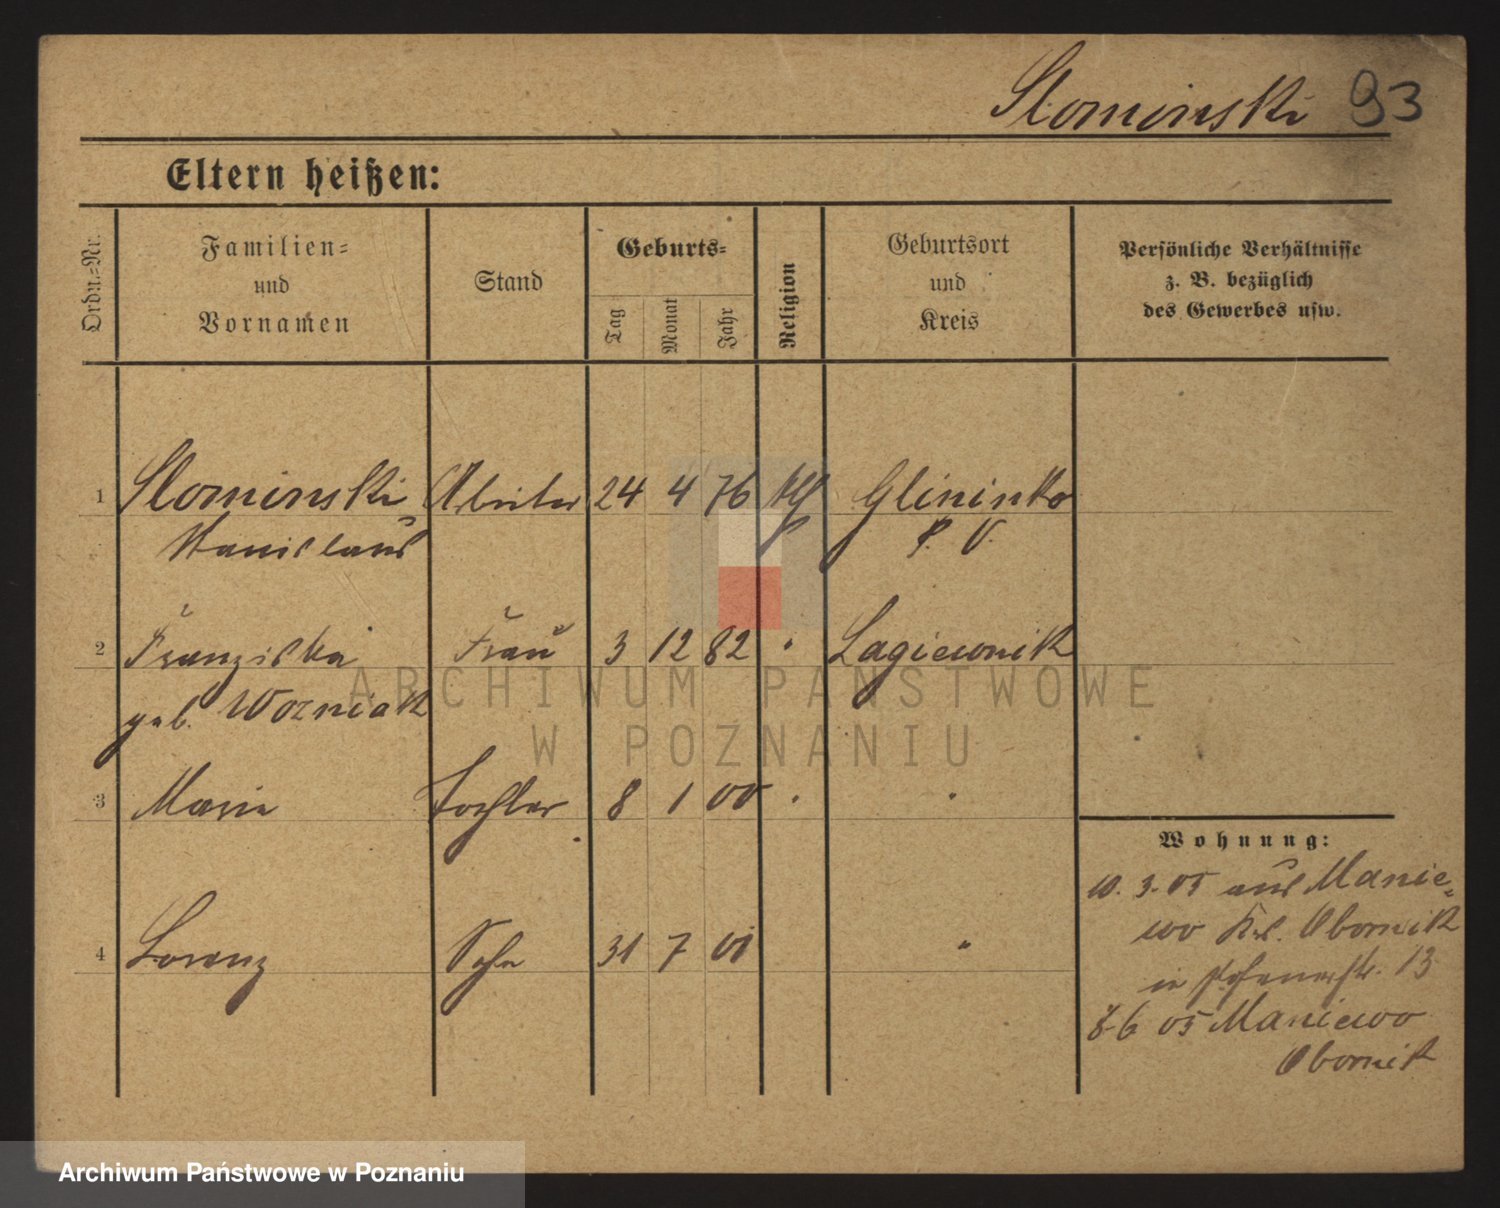 Slominski 93
Eltern heißen:
Ordn.=Nr.
Familien=
und
Vornamen
Stand
Geburts=
Tag
Monat
Jahr
Religion
Geburtsort
und
Kreis
Persönliche Verhältnisse
z. B. bezüglich
des Gewerbes usw.
1 Slominski Arbeiter 24 4 76 Glininko
Stanislaus P. O.
2 Franziska Frau 3 12 82 " Lagiewnik
geb. Wozniak
3 Marie Tochter 8 1 00 " "
4 Lorenz Sohn 31 7 01 "
Wohnung:
10. 3. 05 aus Manie=
wo Kr. Obornik
in Posenerstr. 13
8 6 05 Maniewo
Obornik
ARCHIWUM PAŃSTWOWE
W POZNANIU
Archiwum Państwowe w Poznaniu